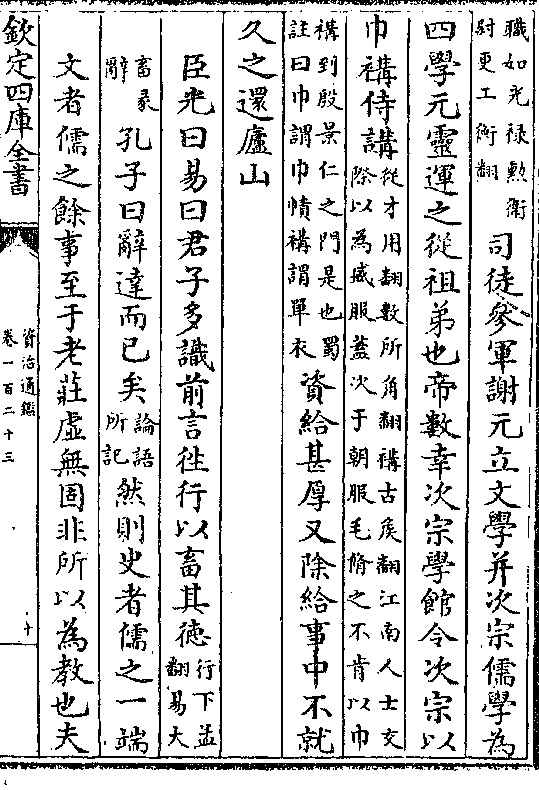 職如光禄勲衛
尉更工衛翻
司徒參軍謝元立文學并次宗儒學為
四學元靈運之從祖弟也帝數幸次宗學館令次宗以
巾褠侍講
從才用翻數所角翻褠古矦翻江南人士交
際以為盛服蓋次于朝服毛脩之不肯以巾
褠到殷景仁之門是也蜀
註曰巾謂巾幘褠謂單衣
資給甚厚又除給事中不就
久之還廬山
臣光曰易曰君子多識前言徃行以畜其徳
行下孟
翻易大
畜彖
辭
孔子曰辭達而已矣
論語
所記
然則史者儒之一端
文者儒之餘事至于老莊虛無固非所以為教也夫
欽定四庫全書
資治通鑑
卷一百二十三
十